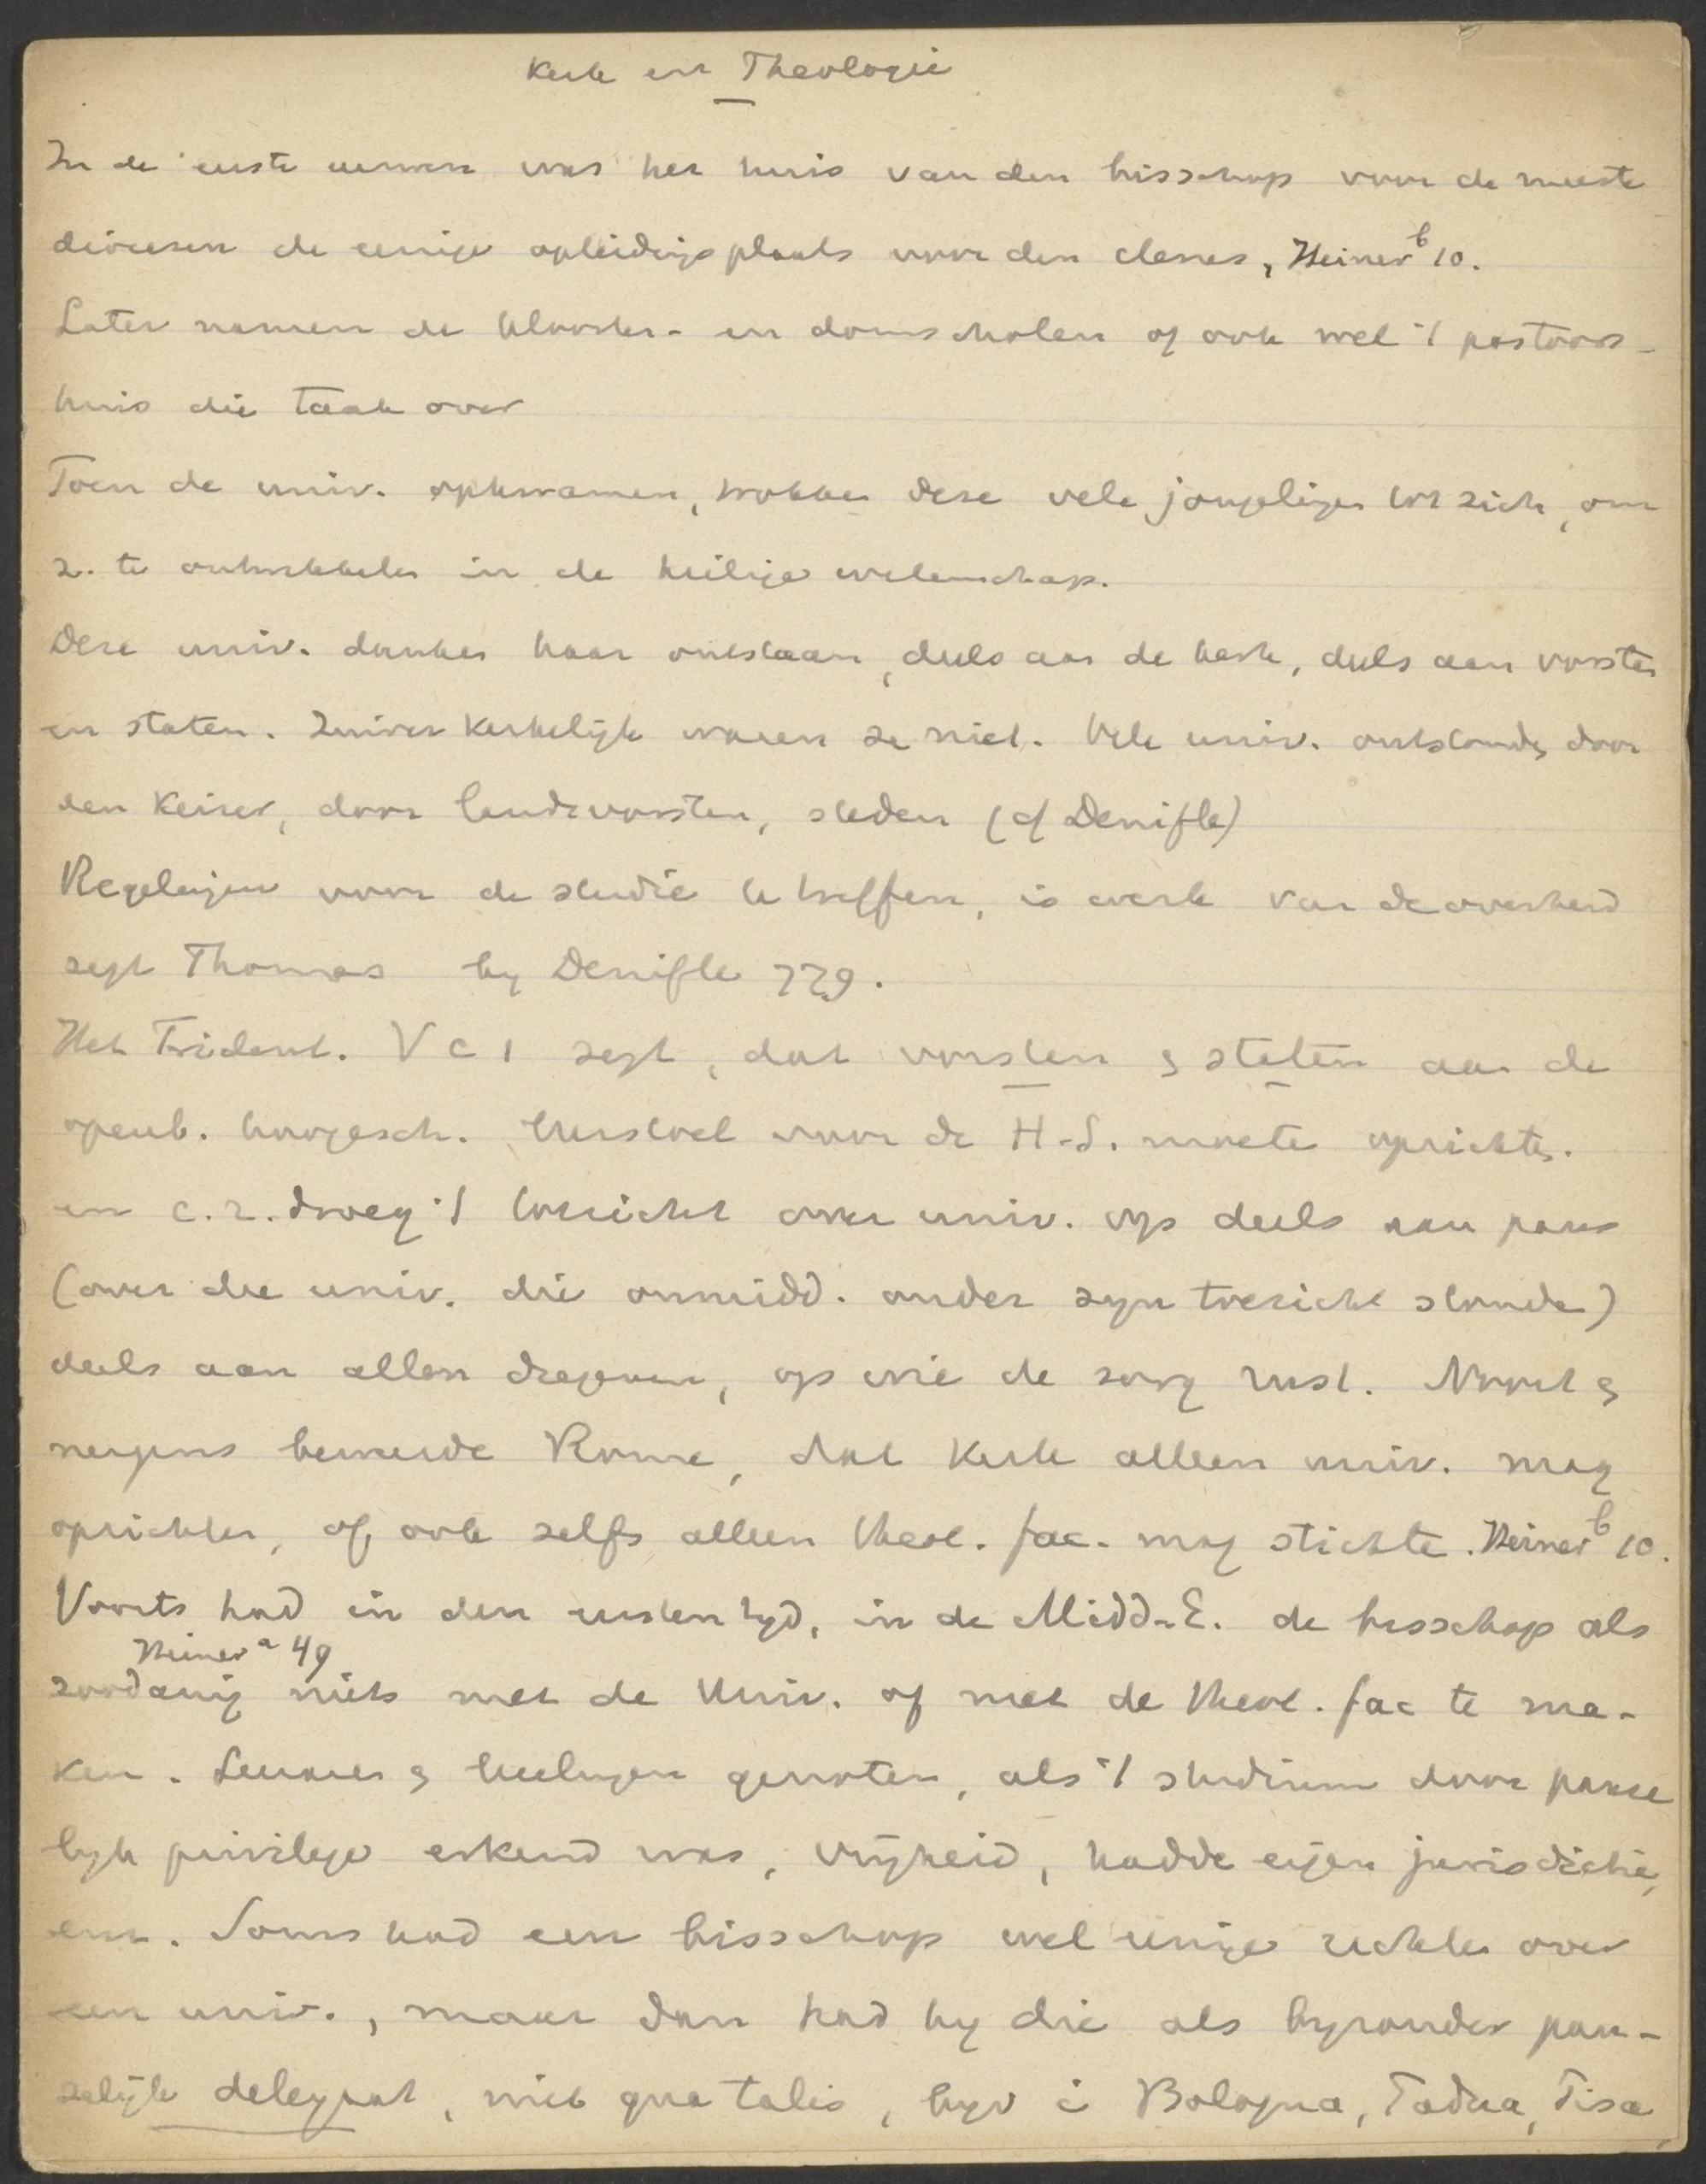 Kerk en Theologie
In de eerste eeuwen was het huis van den bisschop voor de meeste
diocesen de eenige opleidingsplaats voor den clerus, Heiner b 10.
Later namen de klooster- en domscholen of ook wel 't pastoors-
huis die taak over
Toen de univ. opkwamen, trokken deze vele jongelingen tot zich, om
z. te ontwikkelen in de heilige wetenschap.
Deze univ. danken haar ontstaan, deels aan de kerk, deels aan vorsten
en staten. Zuiver kerkelijk waren ze niet. Vele univ. ontstonden door
den Keizer, door landsvorsten, steden (cf Denifle)
Regelingen voor de studie te treffen, is werk van de overheid
zegt Thomas by Denifle 779.
Het Trident. V c 1 zegt, dat vorsten & staten aan de
openb. hoogesch. leerstoel voor de H.S. moeten oprichten.
en c. 2. droeg 't toezicht over univ. op deels aan paus
(over die univ. die onmidd. onder zyn toezicht stonden)
deels aan allen dengenen, op wie de zorg rust. Nooit &
nergens beweerde Rome, dat Kerk alleen univ. mag
oprichten, of ook zelfs alleen theol. fac. mag stichten. Heiner b 10.
Voorts had in den eersten tyd, in de Midd-E. de bisschop als
Heiner a 49
zoodanig niets met de Univ. of met de theol. fac te ma-
ken. Leeraren & leerlingen genoten, als 't studium door pause
lyk privilege erkend was, vrijheid, hadden eigen jurisdictie,
enz. Soms had een bisschop wel eenige rechten over
een univ., maar dan had hy die als byzonder pau-
selijk delegaat, niet qua talis, bijv i Bologna, Padua, Pisa,